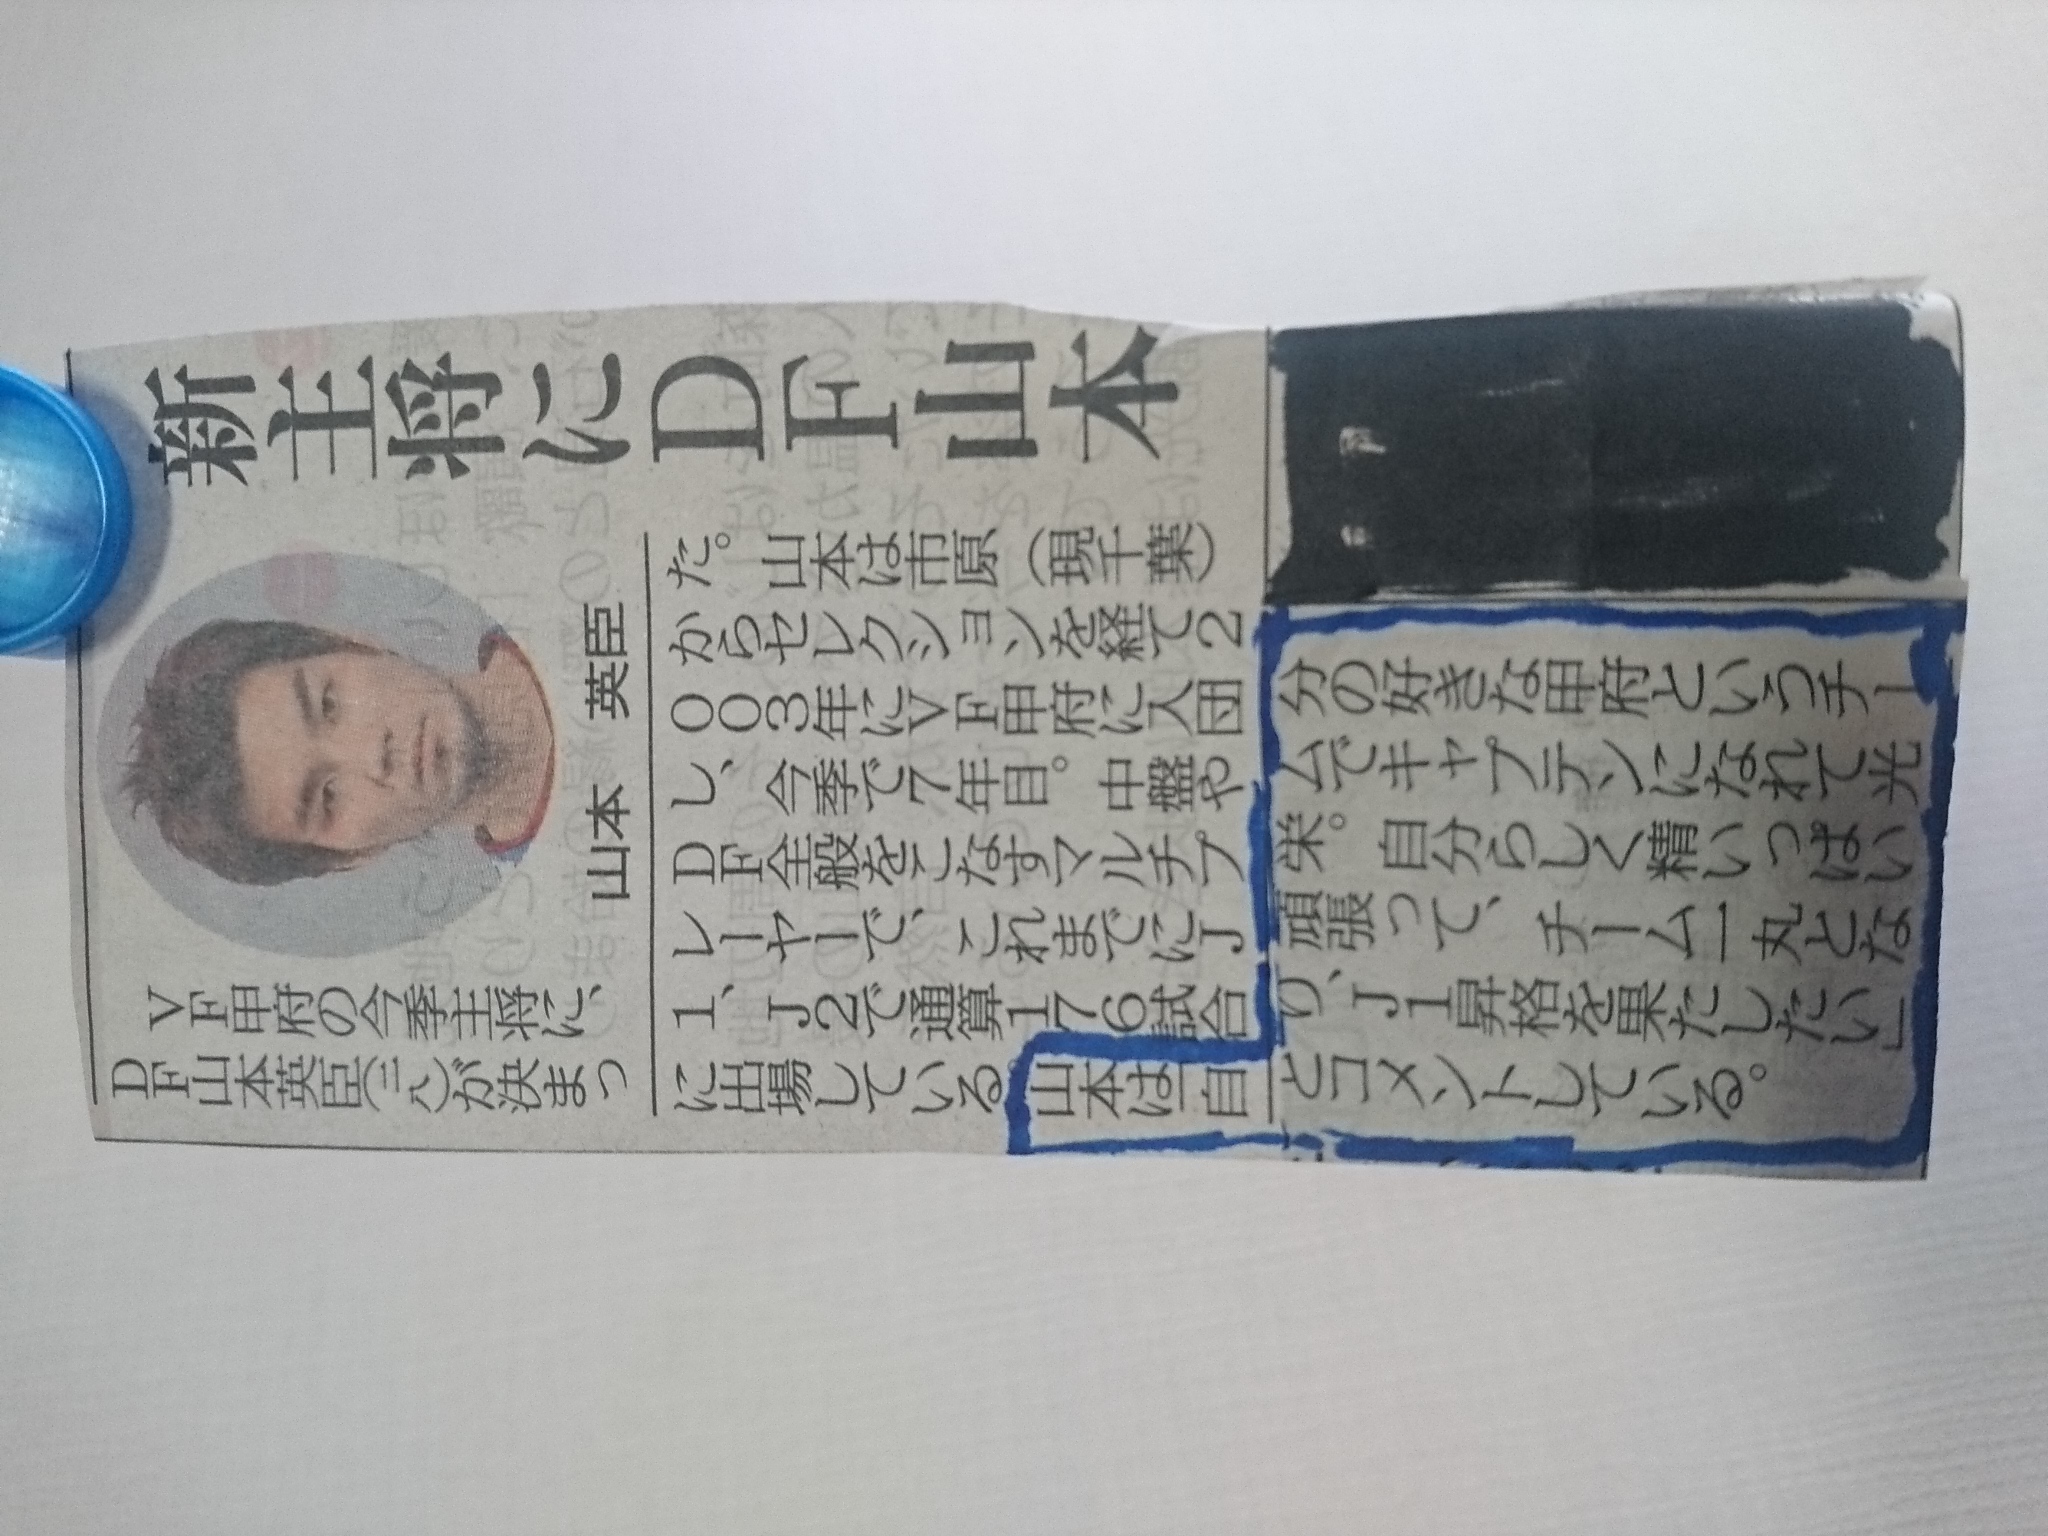 新主将にDF山本
山本 英臣
VF甲府の今季主将に、
DF山本英臣(二八)が決まっ
た。山本は市原(現千葉)
からセレクションを経て2
003年にVF甲府に入団
し、今季で7年目。中盤や
DF全般をこなすマルチプ
レーヤーで、これまでにJ
1、J2で通算176試合
に出場している。山本は「自
分の好きな甲府というチー
ムでキャプテンになれて光
栄。自分らしく精いっぱい
頑張って、チーム一丸とな
り、J1昇格を果たしたい」
とコメントしている。